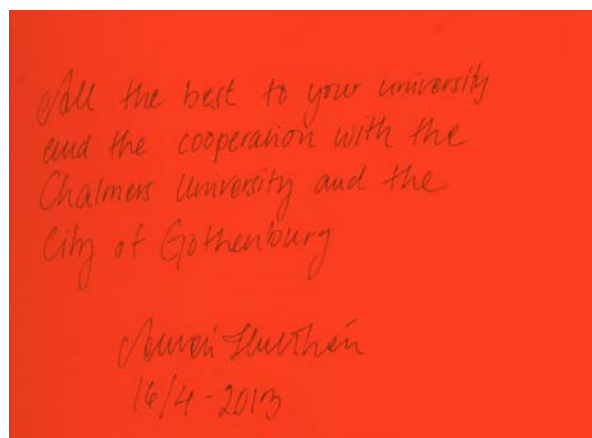 All the best to your university
and the cooperation with the
Chalmers University and the
City of Gothenburg
16/4-2013